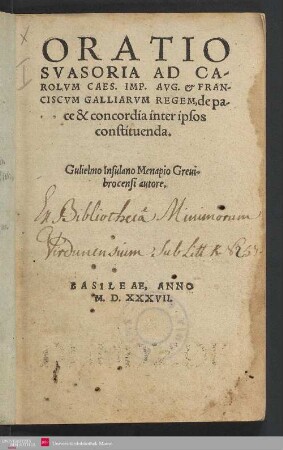 ORATIO
SVASORIA AD CA-
ROLVM CAES. IMP. AVG. & FRAN-
CISCVM GALLIARVM REGEM, de pa-
ce & concordia inter ipsos
constituenda.
Gulielmo Insulano Menapio Greui-
brocensi autore.
Ex Bibliothecâ Minimorum
Virdunensium Sub Litt R
BASILEAE, ANNO
M. D. XXXVII.